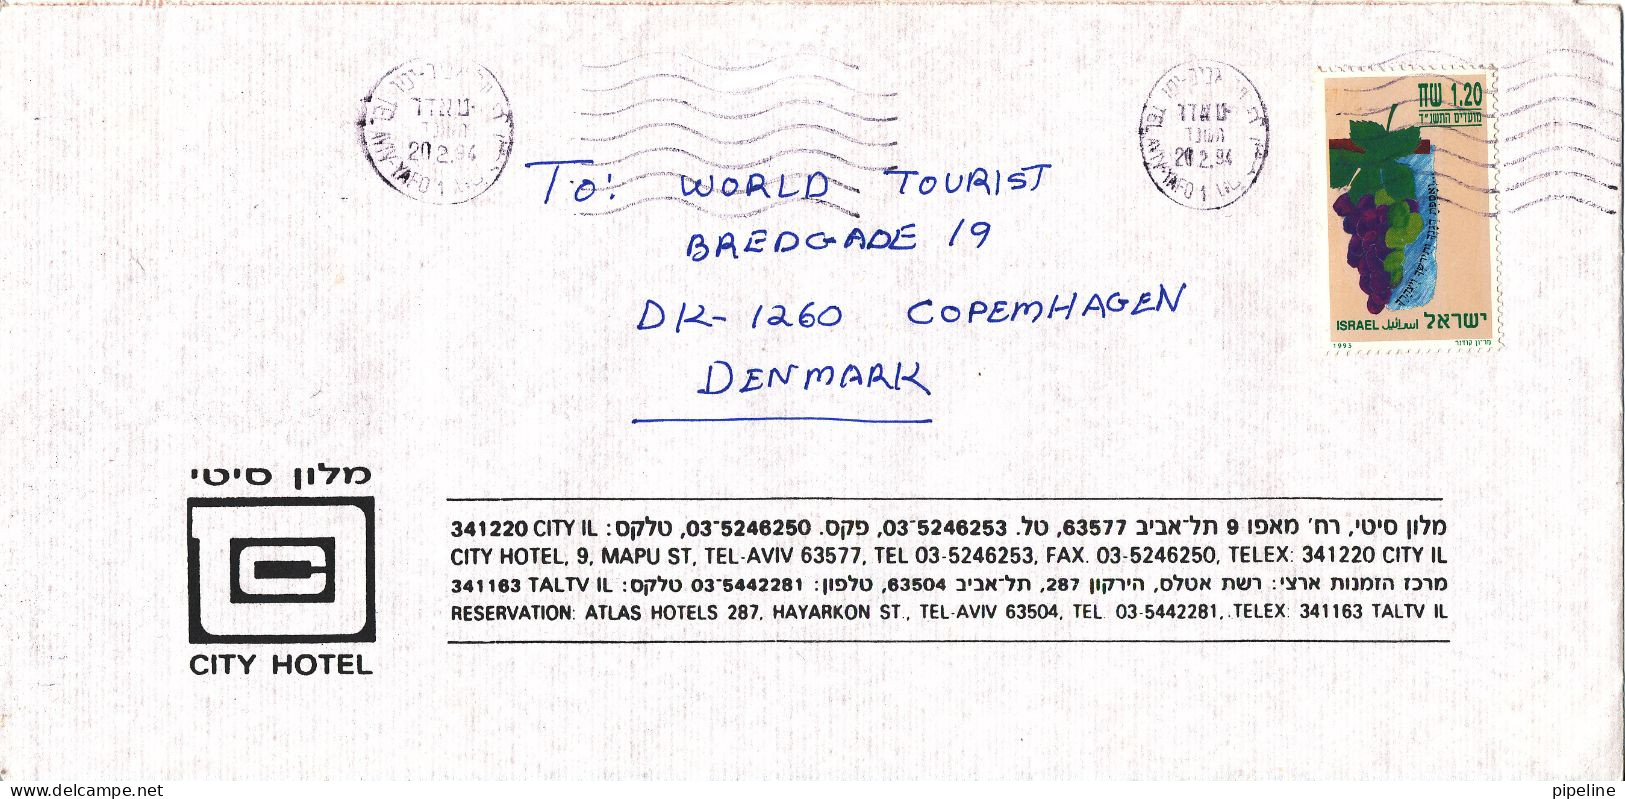 TEL AVIV-YAFO 1
ט אדר
תשנד
20.2.94
AVIV-YAFO 1
ט אדר
תשנד
20.2.94
1.20 שח
מועדים התשנ"ד
ישראל اسرائيل ISRAEL
1993
To: WORLD TOURIST
BREDGADE 19
DK-1260 COPEMHAGEN
DENMARK
מלון סיטי
CITY HOTEL
מלון סיטי, רח' מאפו 9 תל־אביב 63577, טל. 03-5246253, פקס. 03-5246250, טלקס: 341220 CITY IL
CITY HOTEL, 9, MAPU ST, TEL-AVIV 63577, TEL 03-5246253, FAX. 03-5246250, TELEX: 341220 CITY IL
מרכז הזמנות ארצי: רשת אטלס, הירקון 287, תל־אביב 63504, טלפון: 03-5442281 טלקס: 341163 TALTV IL
RESERVATION: ATLAS HOTELS 287, HAYARKON ST., TEL-AVIV 63504, TEL. 03-5442281, TELEX: 341163 TALTV IL
pipeline